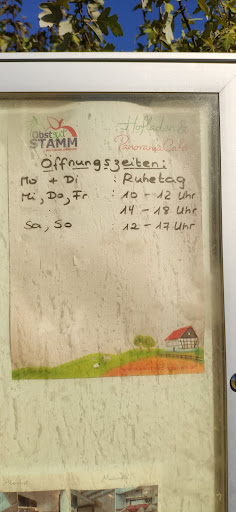 Obstgut
STAMM
Hofladen &
Panorama Café
Öffnungszeiten:
Mo + Di : Ruhetag
Mi, Do, Fr : 10 - 12 Uhr
14 - 18 Uhr
Sa, So : 12 - 17 Uhr